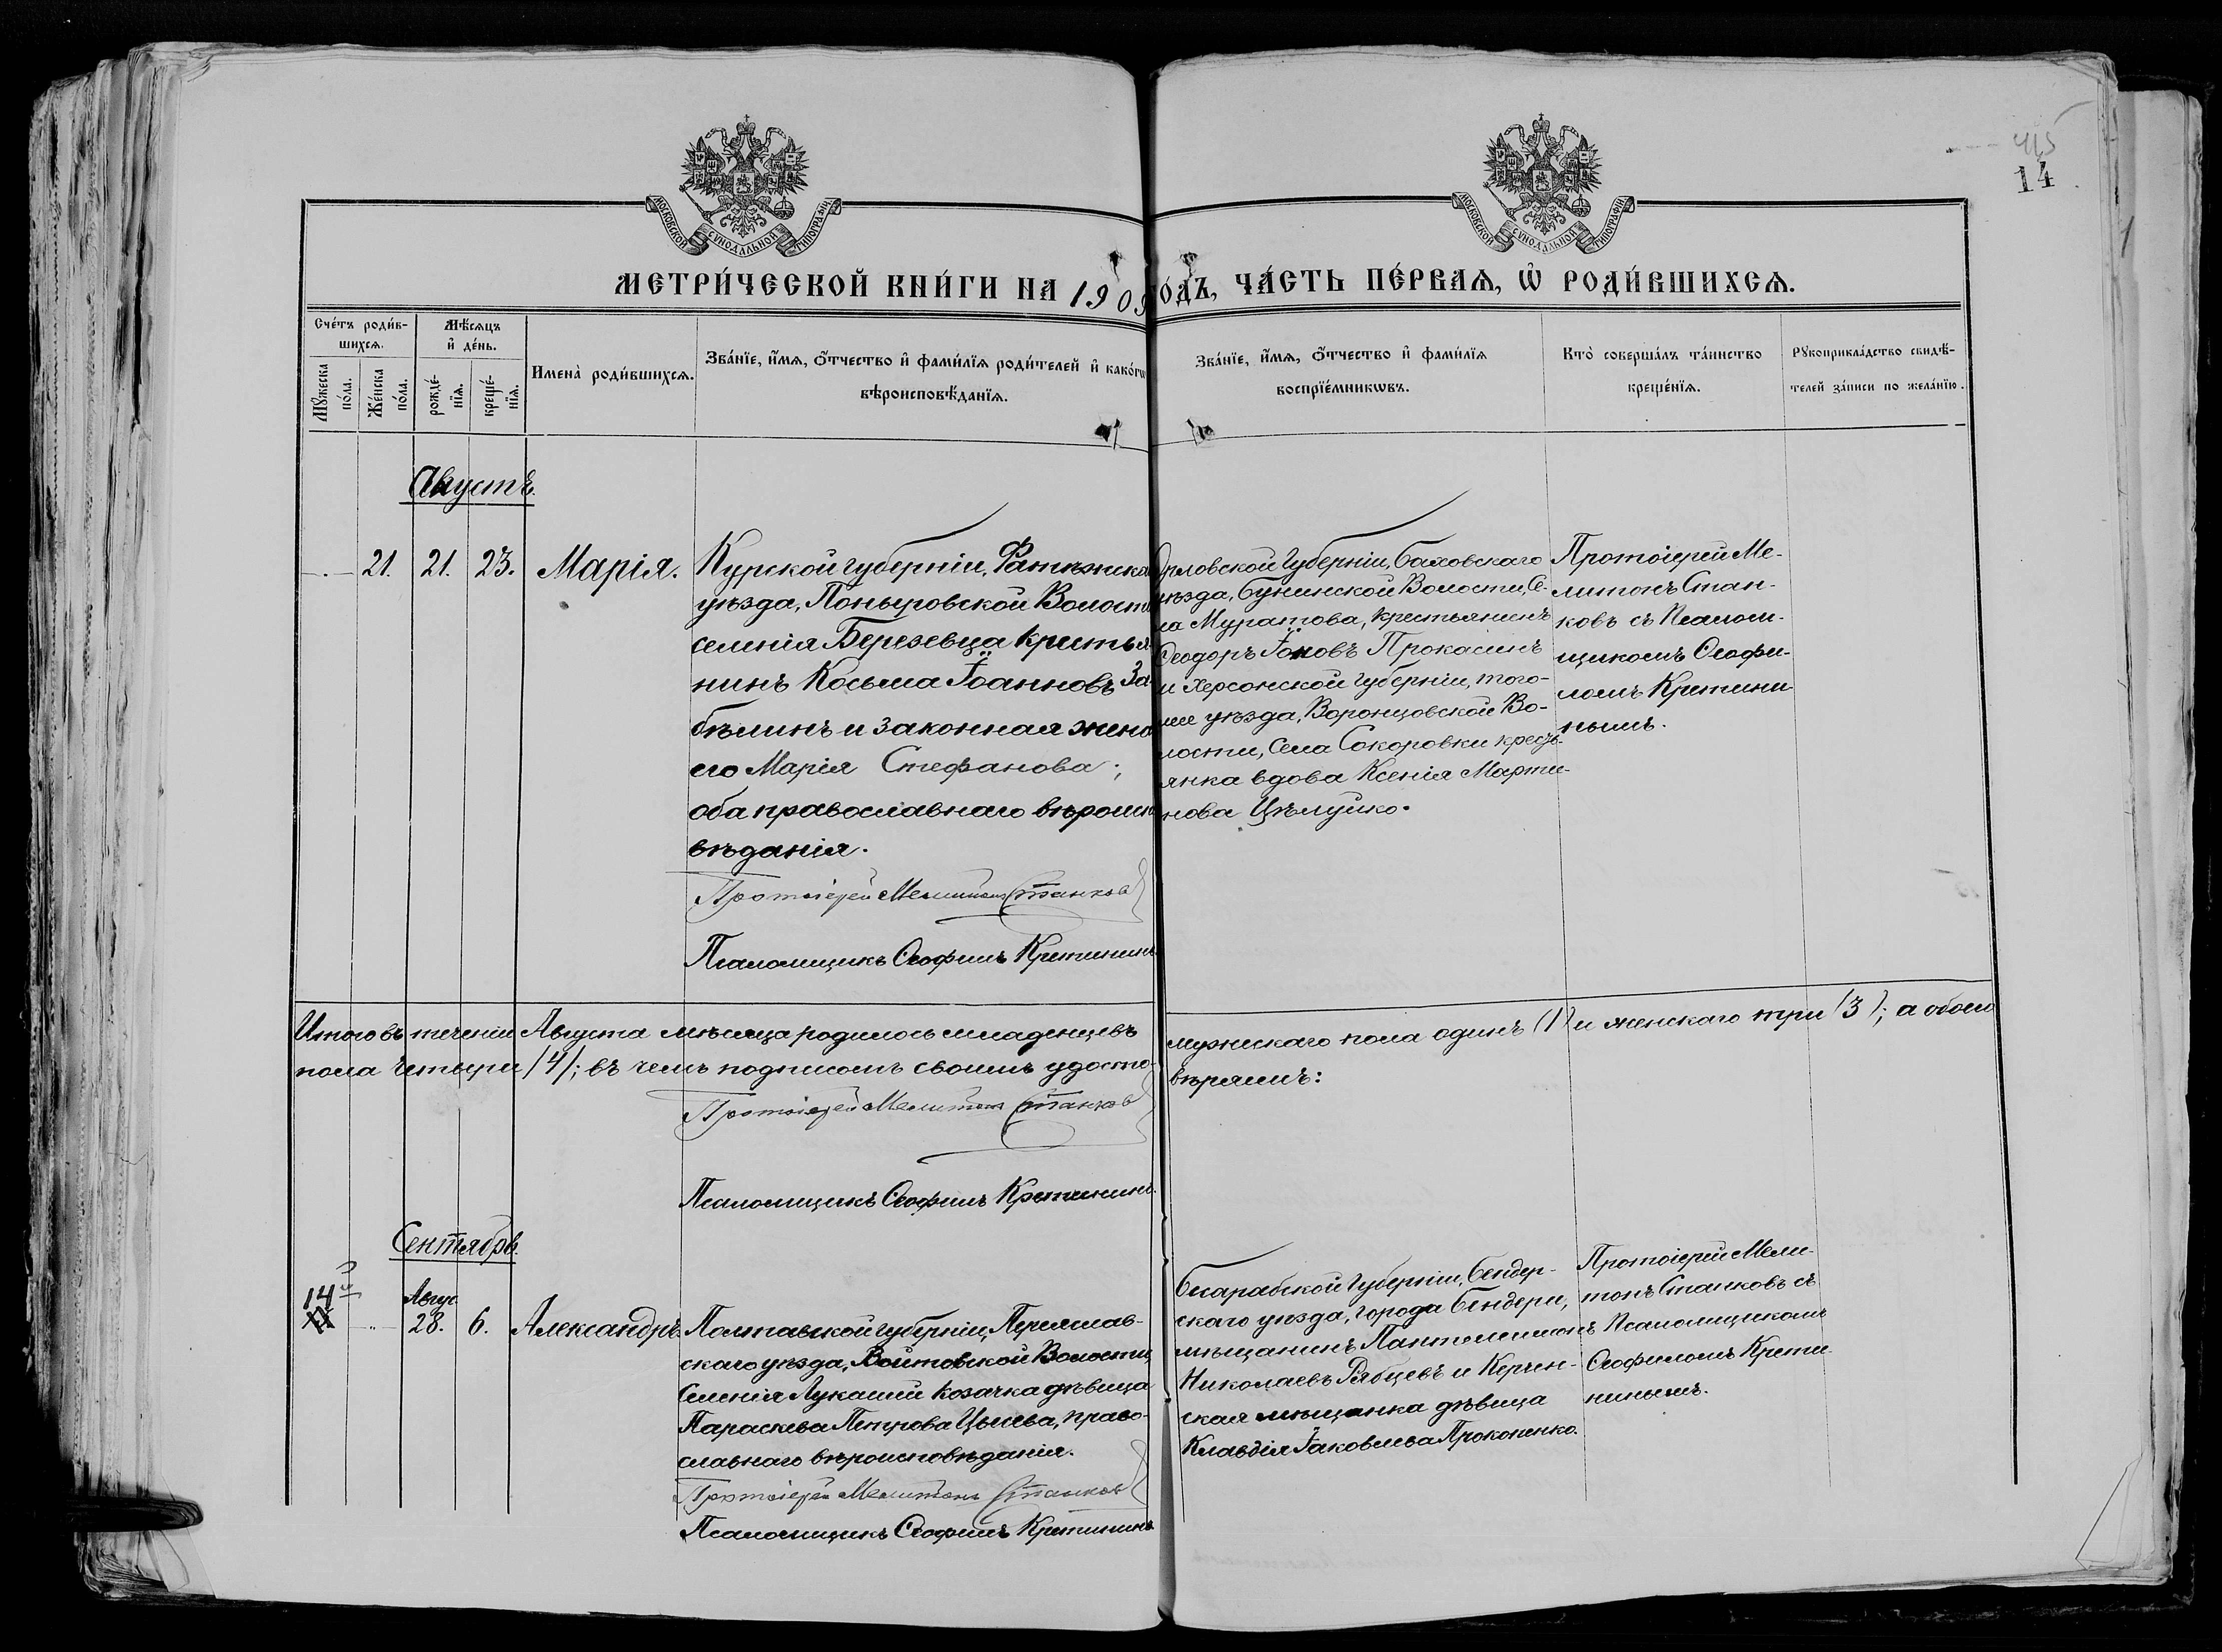 415
14
МОСКОВСКОЙ СѴНОДАЛЬНОЙ ТИПОГРАФІИ
МОСКОВСКОЙ СѴНОДАЛЬНОЙ ТИПОГРАФІИ
МЕТРИ́ЧЕСКОЙ КНИ́ГИ НА 1909 ГО́ДЪ, ЧА́СТЬ ПЕ́РВАѦ, Ѡ҆ РОДИ́ВШИХСѦ.
Сче́тъ роди́в-
шихсѧ.
Мꙋ́жеска по́ла.
Же́нска по́ла.
Мѣ́сѧцъ
и҆ де́нь.
рожде́-нїѧ.
креще́-нїѧ.
Имена̀ роди́вшихсѧ.
Зва́нїе, и҆́мѧ, ѻ҆́тчество и҆ фами́лїѧ роди́телей и҆ како́гѡ
вѣроисповѣ́данїѧ.
Зва́нїе, и҆́мѧ, ѻ҆́тчество и҆ фами́лїѧ
воспрїе́мникѡвъ.
Кто̀ соверша́лъ та́инство
креще́нїѧ.
Рꙋкоприкла́дство свидѣ́-
телей за́писи по жела́нїю.
Августъ.
21. 21. 23. Марія.
Курской губерніи, Фатежска
уѣзда, Поныровской Волости
селенія Березевца кресть я-
нинъ Косьма Іоанновъ За-
бѣлинъ и законная жена
его Марія Стефанова;
оба православнаго вѣроиспо
вѣданія.
Протоіерей Мелитонъ Станковъ
Псаломщикъ Ѳеофилъ Кретининъ
Орловской губерніи, Баховскаго
уѣзда, Бунинской Волости, Се-
ла Муратова, крестьянинъ
Ѳеодоръ Іоновъ Прокасинъ
и Херсонской губерніи, того-
же уѣзда, Воронцовской Во-
лости, Села Сокоровки кресть-
янка вдова Ксенія Марти-
нова Цѣлуйко.
Протоіерей Ме-
литонъ Стан-
ковъ съ Псалом-
щикомъ Ѳеофи-
ломъ Кретини-
нымъ.
Итого въ теченіи Августа мѣсяца родилось младенцевъ мужескаго пола одинъ (1) и женскаго три (3); а обоего
пола четыри (4); въ чемъ подписомъ своимъ удосто- вѣряемъ:
Протоіерей Мелитонъ Станковъ
Псаломщикъ Ѳеофилъ Кретининъ.
Сентябрь.
14й
Авгус.
28. 6. Александръ.
Полтавской губерніи, Переяслав-
скаго уѣзда, Войтовской Волости,
Селенія Лукашей козачка дѣвица
Параскева Петрова Цысева, право-
славнаго вѣроисповѣданія.
Протоіерей Мелитонъ Станковъ
Псаломщикъ Ѳеофилъ Кретининъ
Бесарабской губерніи, Бендер-
скаго уѣзда, города Бендери,
мѣщанинъ Пантелеимонъ
Николаевъ Рябцевъ и Керчен-
ская мѣщанка дѣвица
Клавдія Іаковлева Прокопенко.
Протоіерей Мели-
тонъ Станковъ съ
Псаломщикомъ
Ѳеофиломъ Крети-
нинымъ.